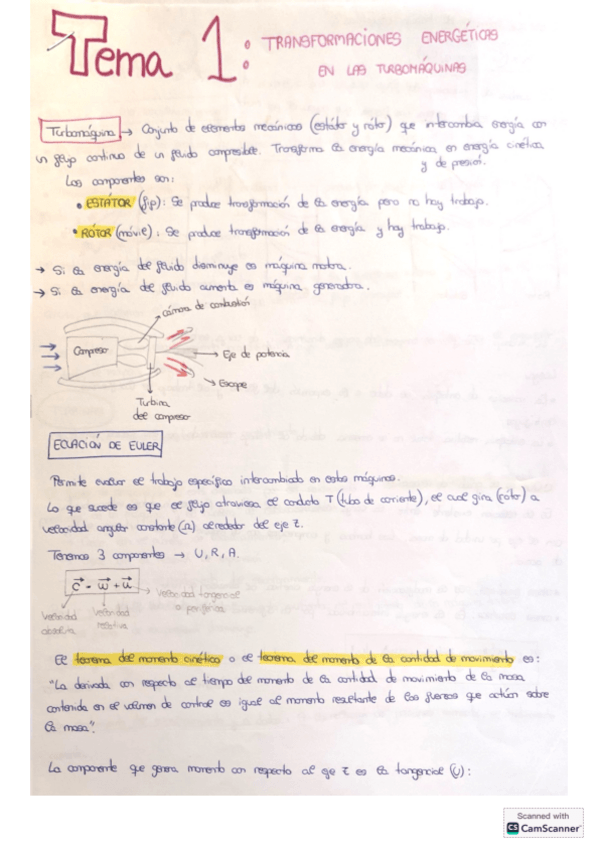 Tema 1: TRANSFORMACIONES ENERGÉTICAS
EN LAS TURBOMÁQUINAS
Turbomáquina → Conjunto de elementos mecánicos (estátor y rótor) que intercambia energía con
un flujo continuo de un fluido compresible. Transforma la energía mecánica en energía cinética
y de presión.
Los componentes son:
• ESTÁTOR (fijo): Se produce transformación de la energía pero no hay trabajo.
• RÓTOR (móvil): Se produce transformación de la energía y hay trabajo.
→ Si la energía del fluido disminuye es máquina motora.
→ Si la energía del fluido aumenta es máquina generadora.
cámara de combustión
Compresor
→ Eje de potencia
→ Escape
Turbina
del compresor
ECUACIÓN DE EULER
Permite evaluar el trabajo específico intercambiado en estas máquinas.
Lo que sucede es que el flujo atraviesa el conducto T (tubo de corriente), el cual gira (rótor) a
velocidad angular constante (Ω) alrededor del eje z.
Tenemos 3 componentes → U, R, A.
c⃗ = w⃗ + u⃗ → Velocidad tangencial
o periférica
Velocidad absoluta
Velocidad relativa
El teorema del momento cinético o el teorema del momento de la cantidad de movimiento es:
"La derivada con respecto al tiempo del momento de la cantidad de movimiento de la masa
contenida en el volumen de control es igual al momento resultante de las fuerzas que actúan sobre
la masa".
La componente que genera momento con respecto al eje z es la tangencial (U):
Scanned with
CS CamScanner